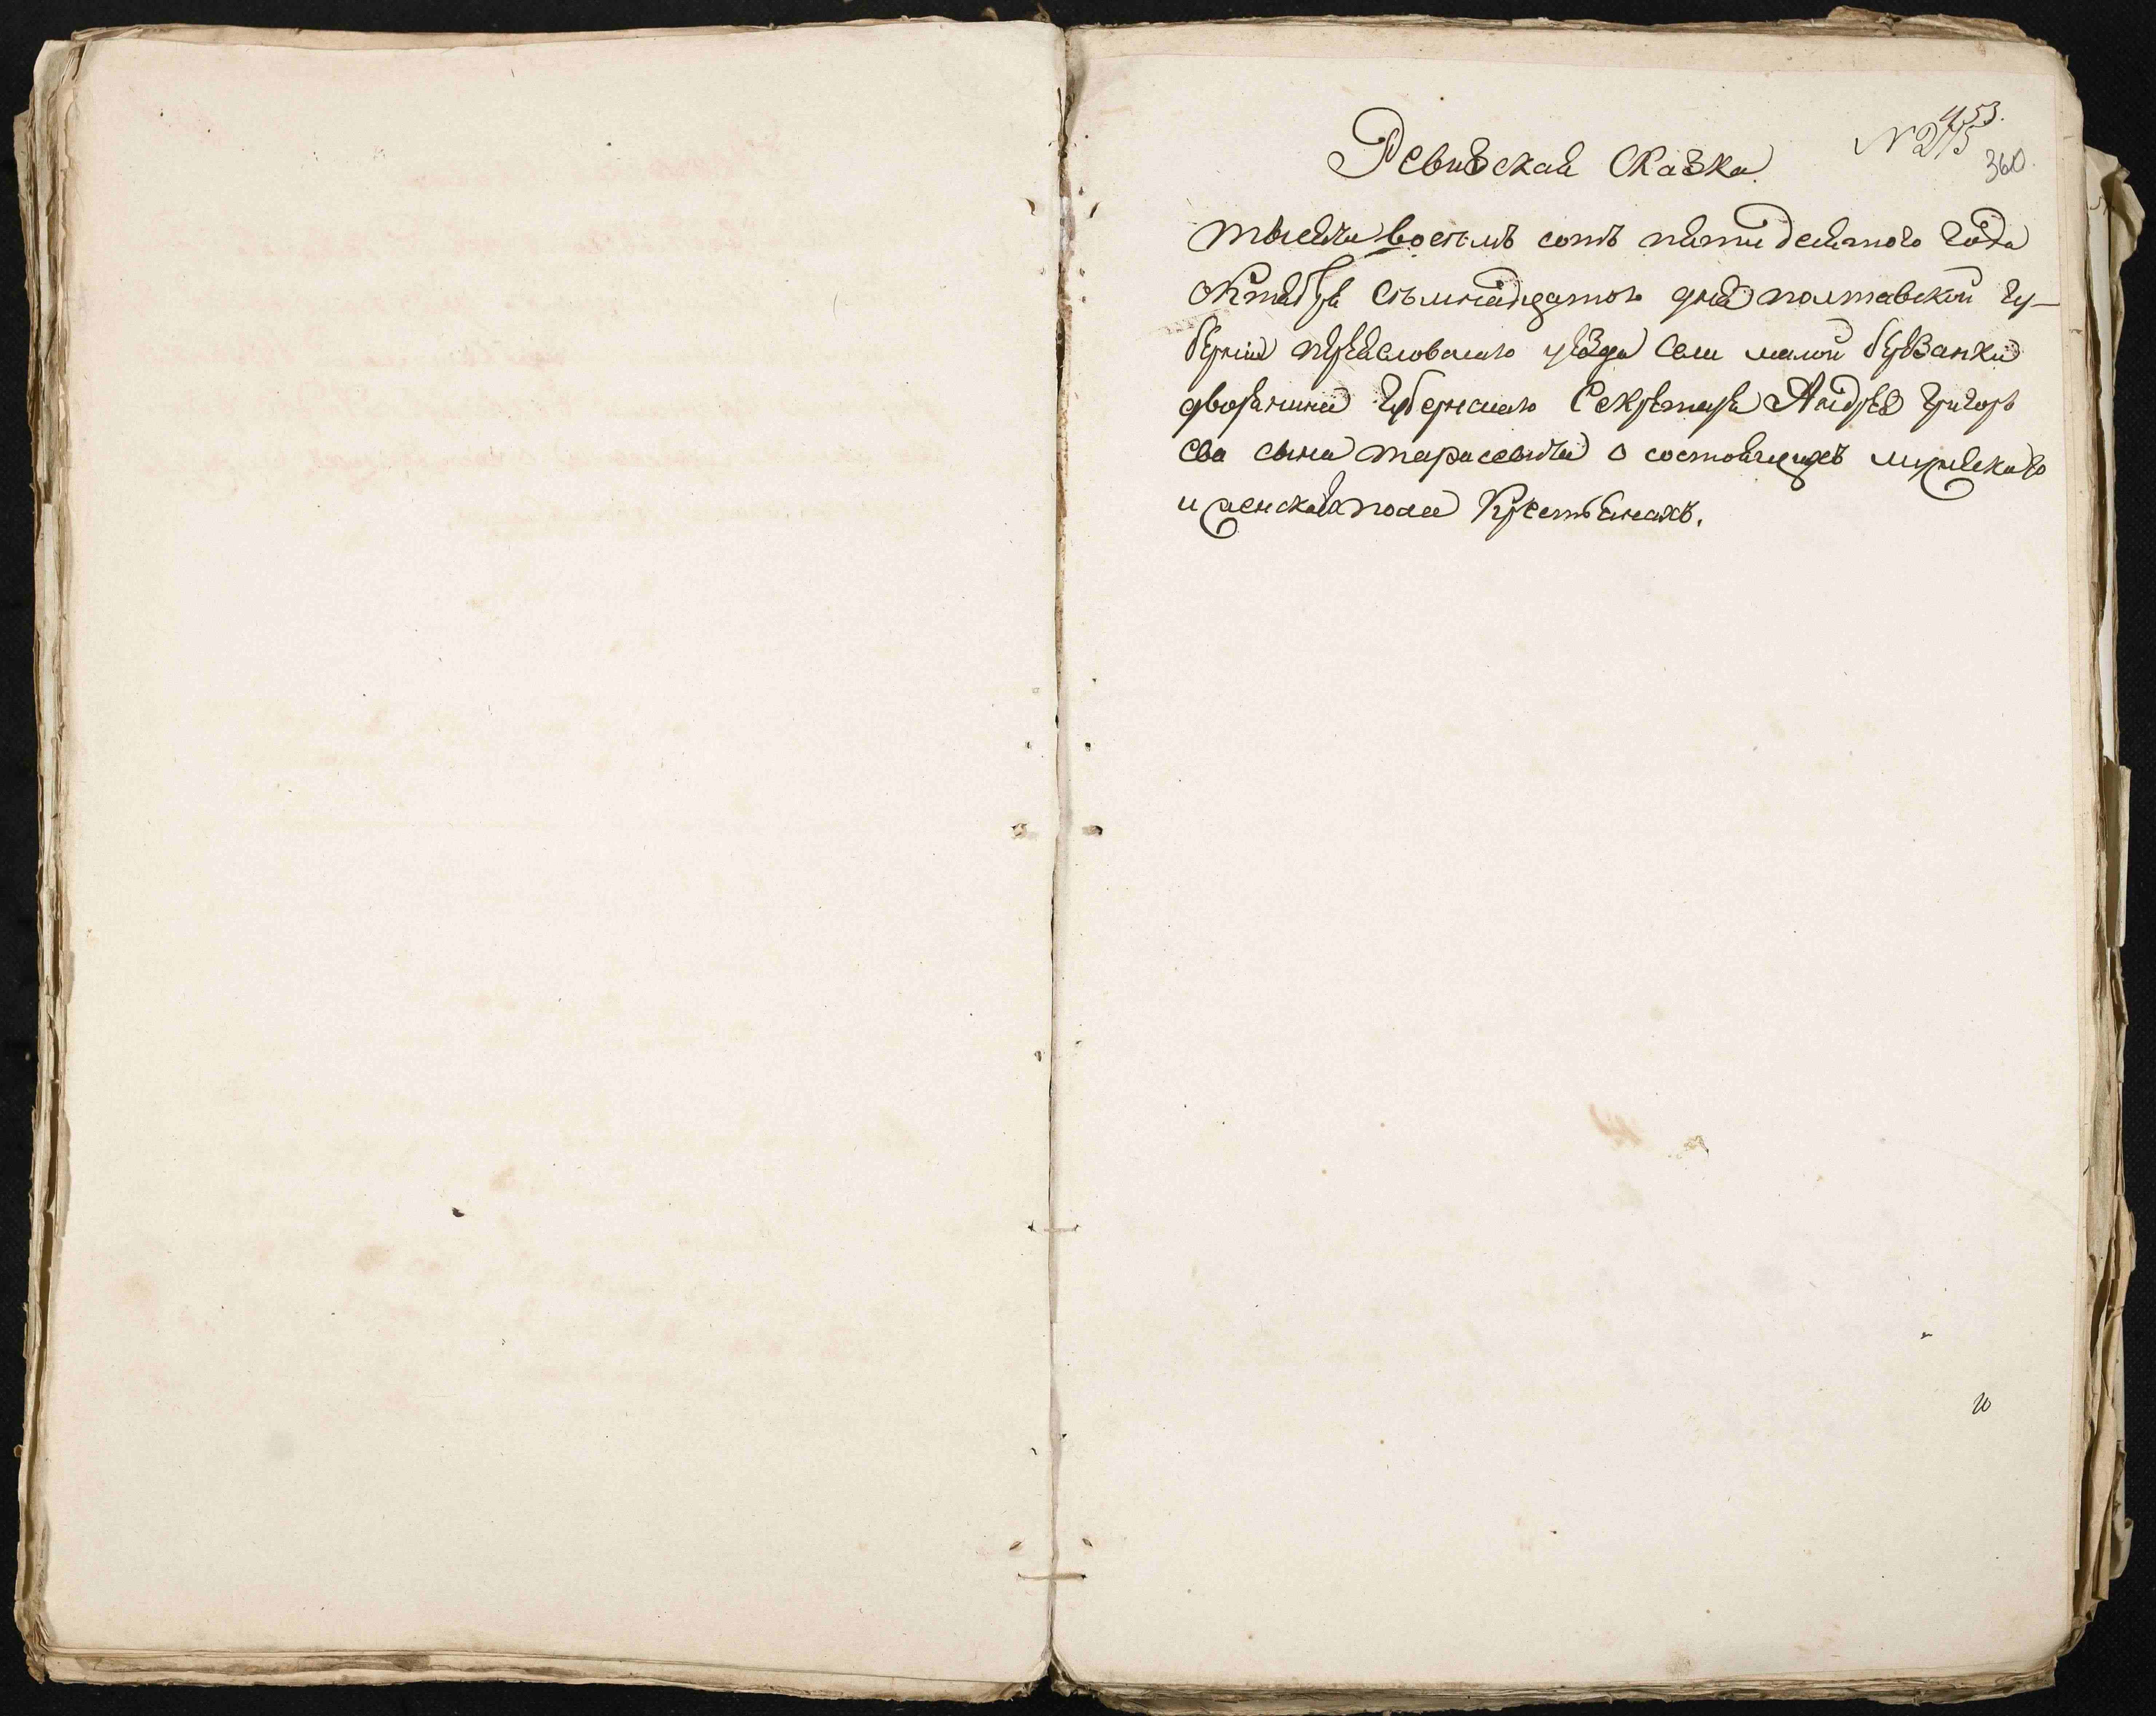 453.
N 275
360.
Ревизская Сказка
тысяча восемь сотъ пятидесятого года
октября семнадцатого дня полтавской гу-
берніи переясловского уезда села малой бурВанки
дворянина Губернского Секретаря Андрея Григорь
ева сына тарасевича о состоящихъ мужескаго
и женска пола Крестьянахъ.